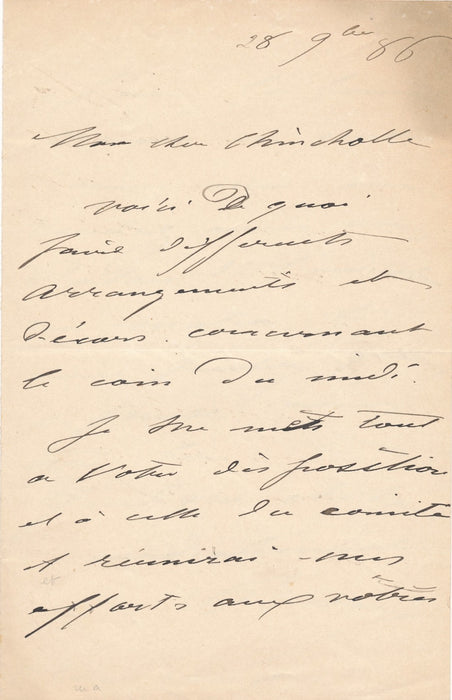 28 9bre 86
Mon cher Chincholle
voici De quoi
faire différents
arrangements et
Décors concernant
le coin Du midi.
Je me mets tout
a votre disposition
et à celle Du comité
et réunirai mes
efforts aux vôtres
et